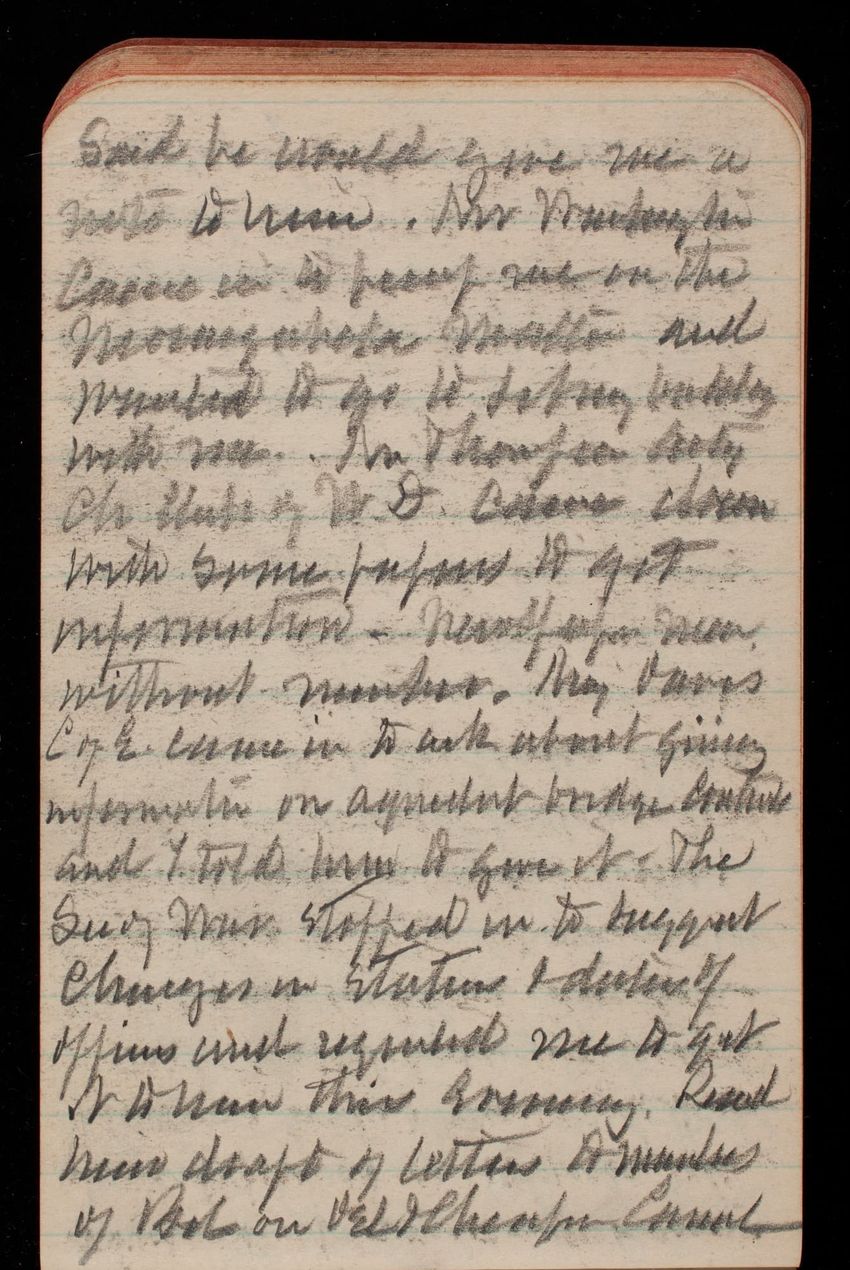 Said he would give me a
note to him. Mr Washington
Came in to pump me on the
Monongahela Matter and
Wanted to go to
with me. Mr Thompson
Ch Clerk of W D. Came down
with some papers to get
information - Newspaper men
without number. Maj Davis
C of E. came in to ask about giving
informatin on aqueduct bridge Contract
and I told him to give it - The
Sec of War stopped in to suggest
Changes in Station & duties of
officers and requested me to get
it to him this Evening. Read
him draft of letters to members
of Bd on Del & Chesapeke Canal